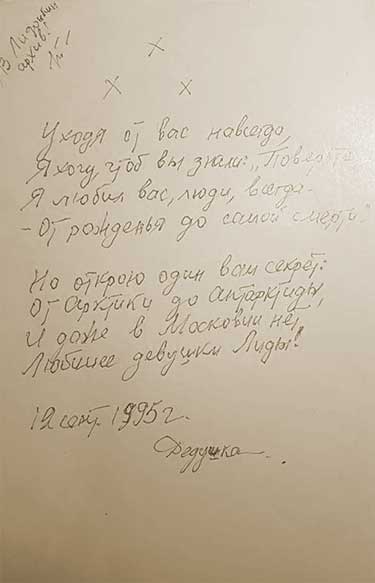 В Лидочкин
архив!
х
х х
Уходя от вас навсегда,
Я хочу, чтоб вы знали: „Поверьте
Я любил вас, люди, всегда –
– От рожденья до самой смерти“
Но открою один вам секрет:
От Арктики до Антарктиды,
И даже в Московии нет
Любимее девушки Лиды!
12 сент. 1995 г.
Дедушка